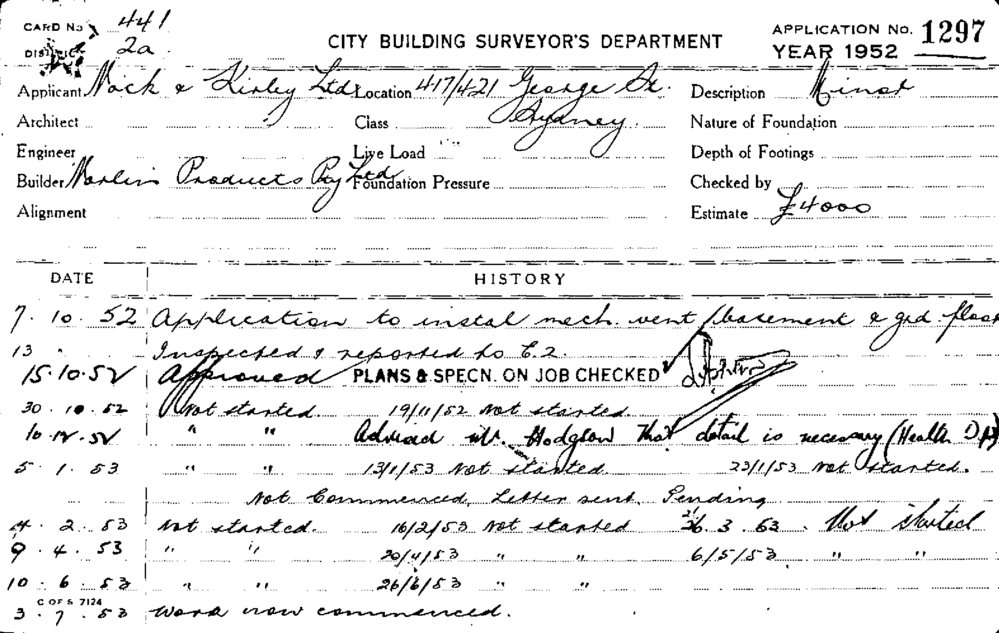 CARD No 441
DISTRICT 2a.
CITY BUILDING SURVEYOR'S DEPARTMENT
APPLICATION No. 1297
YEAR 1952
Applicant Nock & Kirby Ltd. Location 417/421 George St. Description Minor
Architect Class Sydney Nature of Foundation
Engineer Live Load Depth of Footings
Builder Marlin Products Pty Ltd Foundation Pressure Checked by
Alignment Estimate £4000
DATE HISTORY
7. 10. 52 Application to instal mech. vent basement & grd. floor
13 " Inspected & reported to C.2.
15.10.52 Approved PLANS & SPECN. ON JOB CHECKED
30. 10. 52 Not started 19/11/52 Not started
10.12.52 " " Advised Mr. Hodgson that detail is necessary (Health Dpt)
5. 1. 53 " " 13/1/53 Not started 23/1/53 Not started.
Not Commenced, Letter sent. Pending
4. 2. 53 Not started. 16/2/53 Not started 3. 53. Not started
9. 4. 53 " " 20/4/53 " " 6/5/53 " "
10. 6. 53 " " 26/6/53 " "
C OF S 7124
3. 7. 53 Work now commenced.